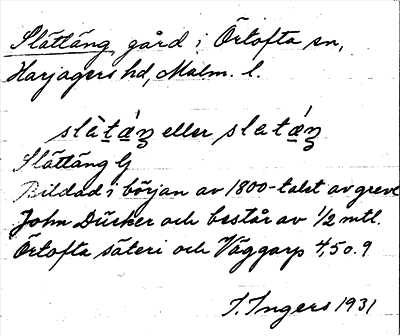 Slättäng gård i Örtofta sn,
Harjagers hd, Malm. l.
slätäŋ eller slatäŋ
Slättäng G
Bildad i början av 1800-talet av greve
John Dücker och består av 1/2 mtl.
Örtofta säteri och Väggarp 4, 5 o. 9
I. Ingers 1931